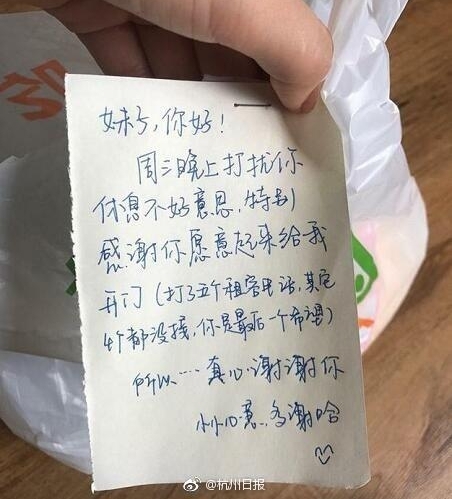 妹子,你好!
周二晚上打扰你
休息不好意思,特别
感谢你愿意起来给我
开门(打了五个租客电话,其它
4个都没接,你是最后一个希望)
所以……真心谢谢你
小小心意…多谢哈
@杭州日报